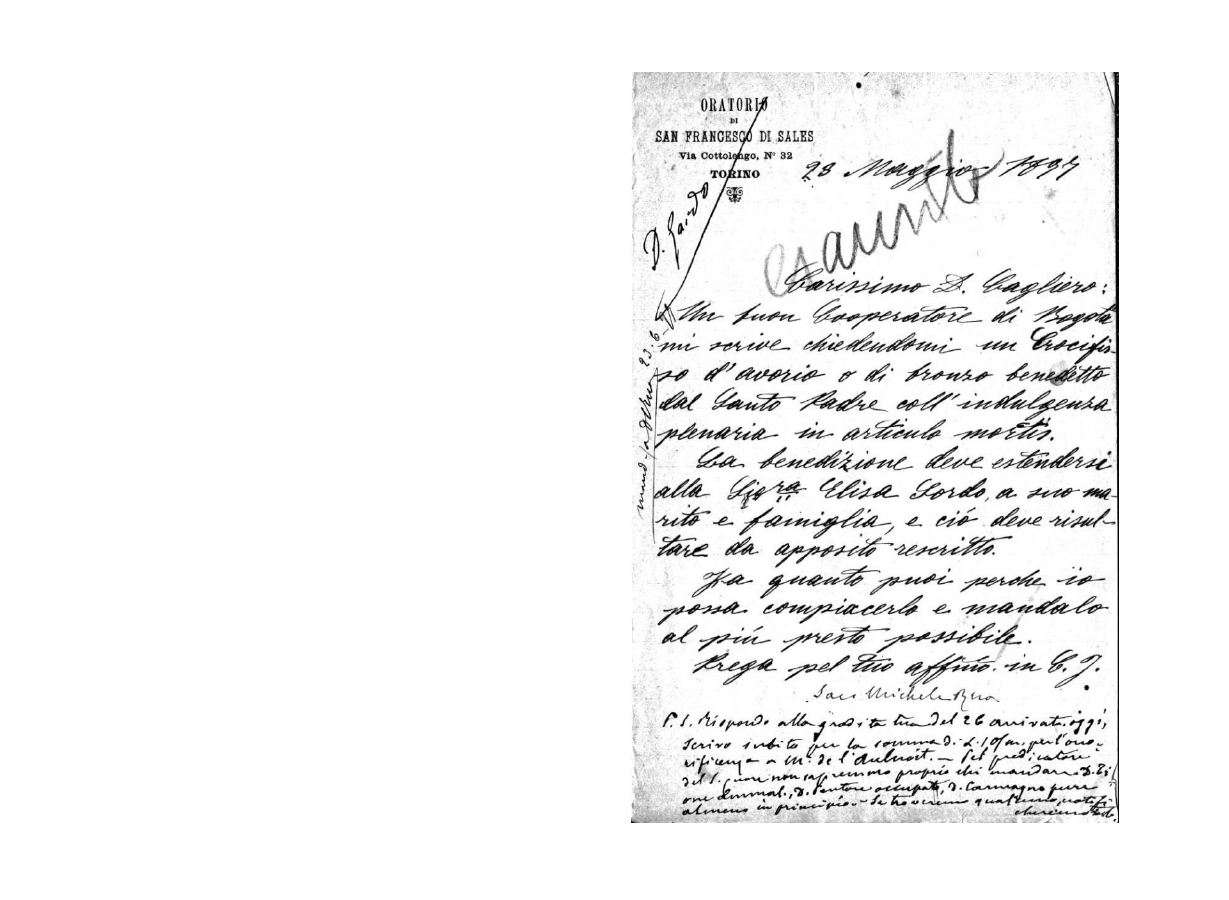 ORATORIO
DI
SAN FRANCESCO DI SALES
Via Cottolengo, Nº 32
TORINO
23 Maggio 1897
esaurito
Carissimo D. Cagliero:
Un buon Cooperatore di Bogotà
mi scrive chiedendomi un Crocifis-
so d'avorio o di bronzo benedetto
dal Santo Padre coll'indulgenza
plenaria in articulo mortis.
La benedizione deve estendersi
alla Sigra Elisa Sordo, a suo ma-
rito e famiglia, e ciò deve risul-
tare da apposito rescritto.
Fa quanto puoi perche io
possa compiacerlo e mandalo
al più presto possibile.
Prega pel tuo affmo. in C. J.
Sac. Michele Rua
P. S. Rispondo alla gradita tua del 26 arrivata oggi,
scrivo subito per la somma di per l'ono-
rificenza a Mr. de l'
del S. Cuore non sapremmo proprio chi mandare. D.
occupato, D. Carmagno pure
almeno in principio. Se troveremo qualcuno,